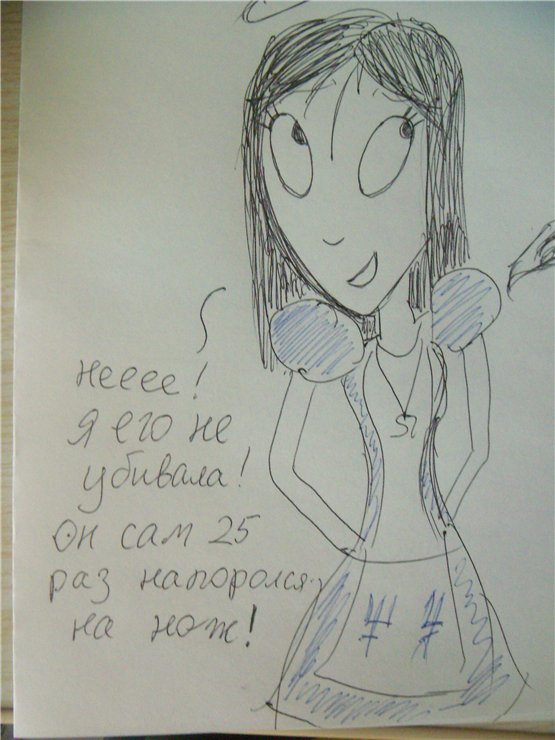 нееее!
я его не
убивала!
Он сам 25
раз напоролся
на нож!